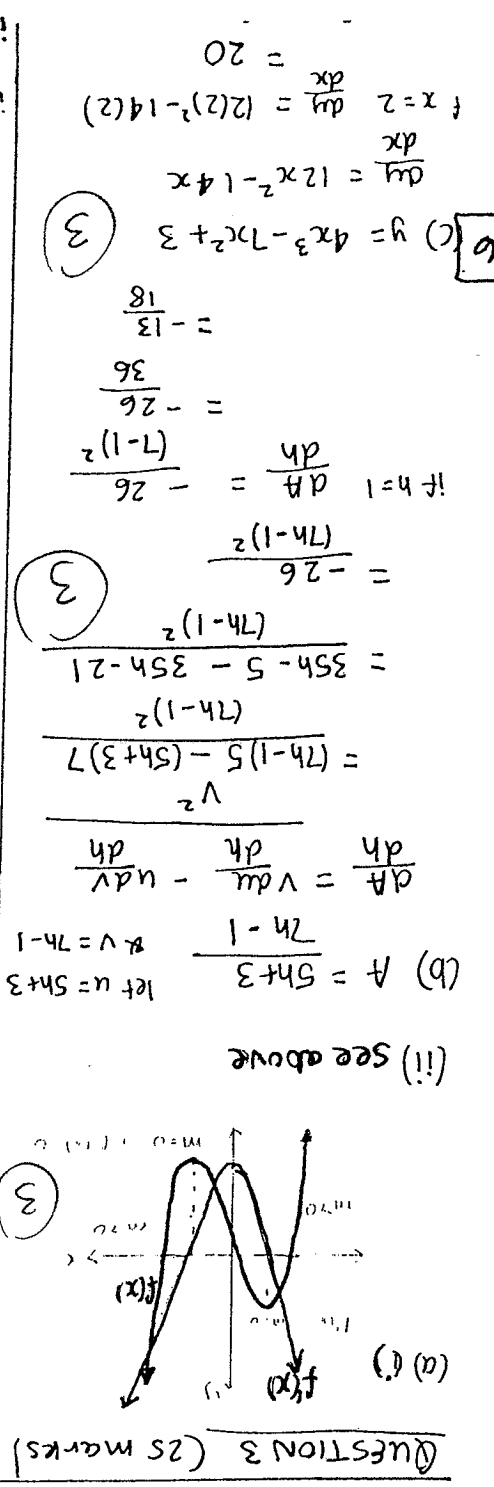 QUESTION 3 (25 marks)
(a) (i)
f'(x)
y
f(x)
x
m=0
m>0
m>0
m=0
3
(ii) see above
(b) A = 5h+3 / 7h-1
let u = 5h+3
& v = 7h-1
dA/dh = (v du/dh - u dv/dh) / v²
= ((7h-1)5 - (5h+3)7) / (7h-1)²
= (35h-5 - 35h-21) / (7h-1)²
= -26 / (7h-1)²
3
if h=1 dA/dh = -26 / (7-1)²
= -26/36
= -13/18
6
(c) y = 4x³-7x²+3
3
dy/dx = 12x²-14x
f x=2 dy/dx = 12(2)²-14(2)
= 20